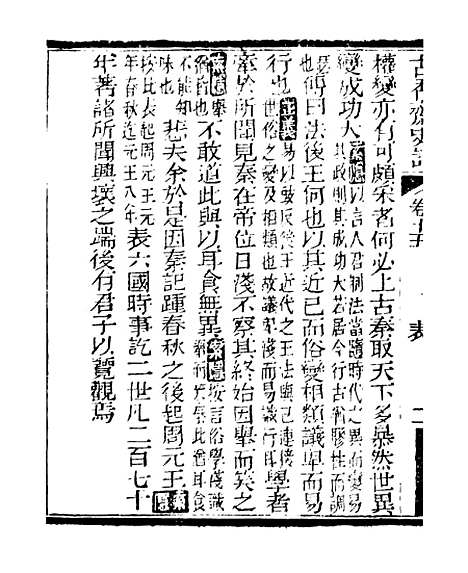 古香齋史記 卷十五 表 二
權變亦有可頗采者何必上古秦取天下多暴然世異
變成功大索隱以言人君制法當隨時代之異而變易其政則其成功大若居今行古猶膠柱而調
瑟也傳曰法後王何也以其近已而俗變相類議卑而易
行也正義易以豉反後王近代之王法與已連接世俗之變及相類也故議卑淺而易識行耳學者
牽於所聞見秦在帝位日淺不察其終始因舉而笑之
索隱舉猶皆也不敢道此與以耳食無異索隱按言俗學淺識舉而笑秦此猶耳食
不能知味也悲夫余於是因秦記踵春秋之後起周元王索隱
按此表起周元王元年春秋迄元王八年表六國時事訖二世凡二百七十
年著諸所聞興壞之端後有君子以覽觀焉